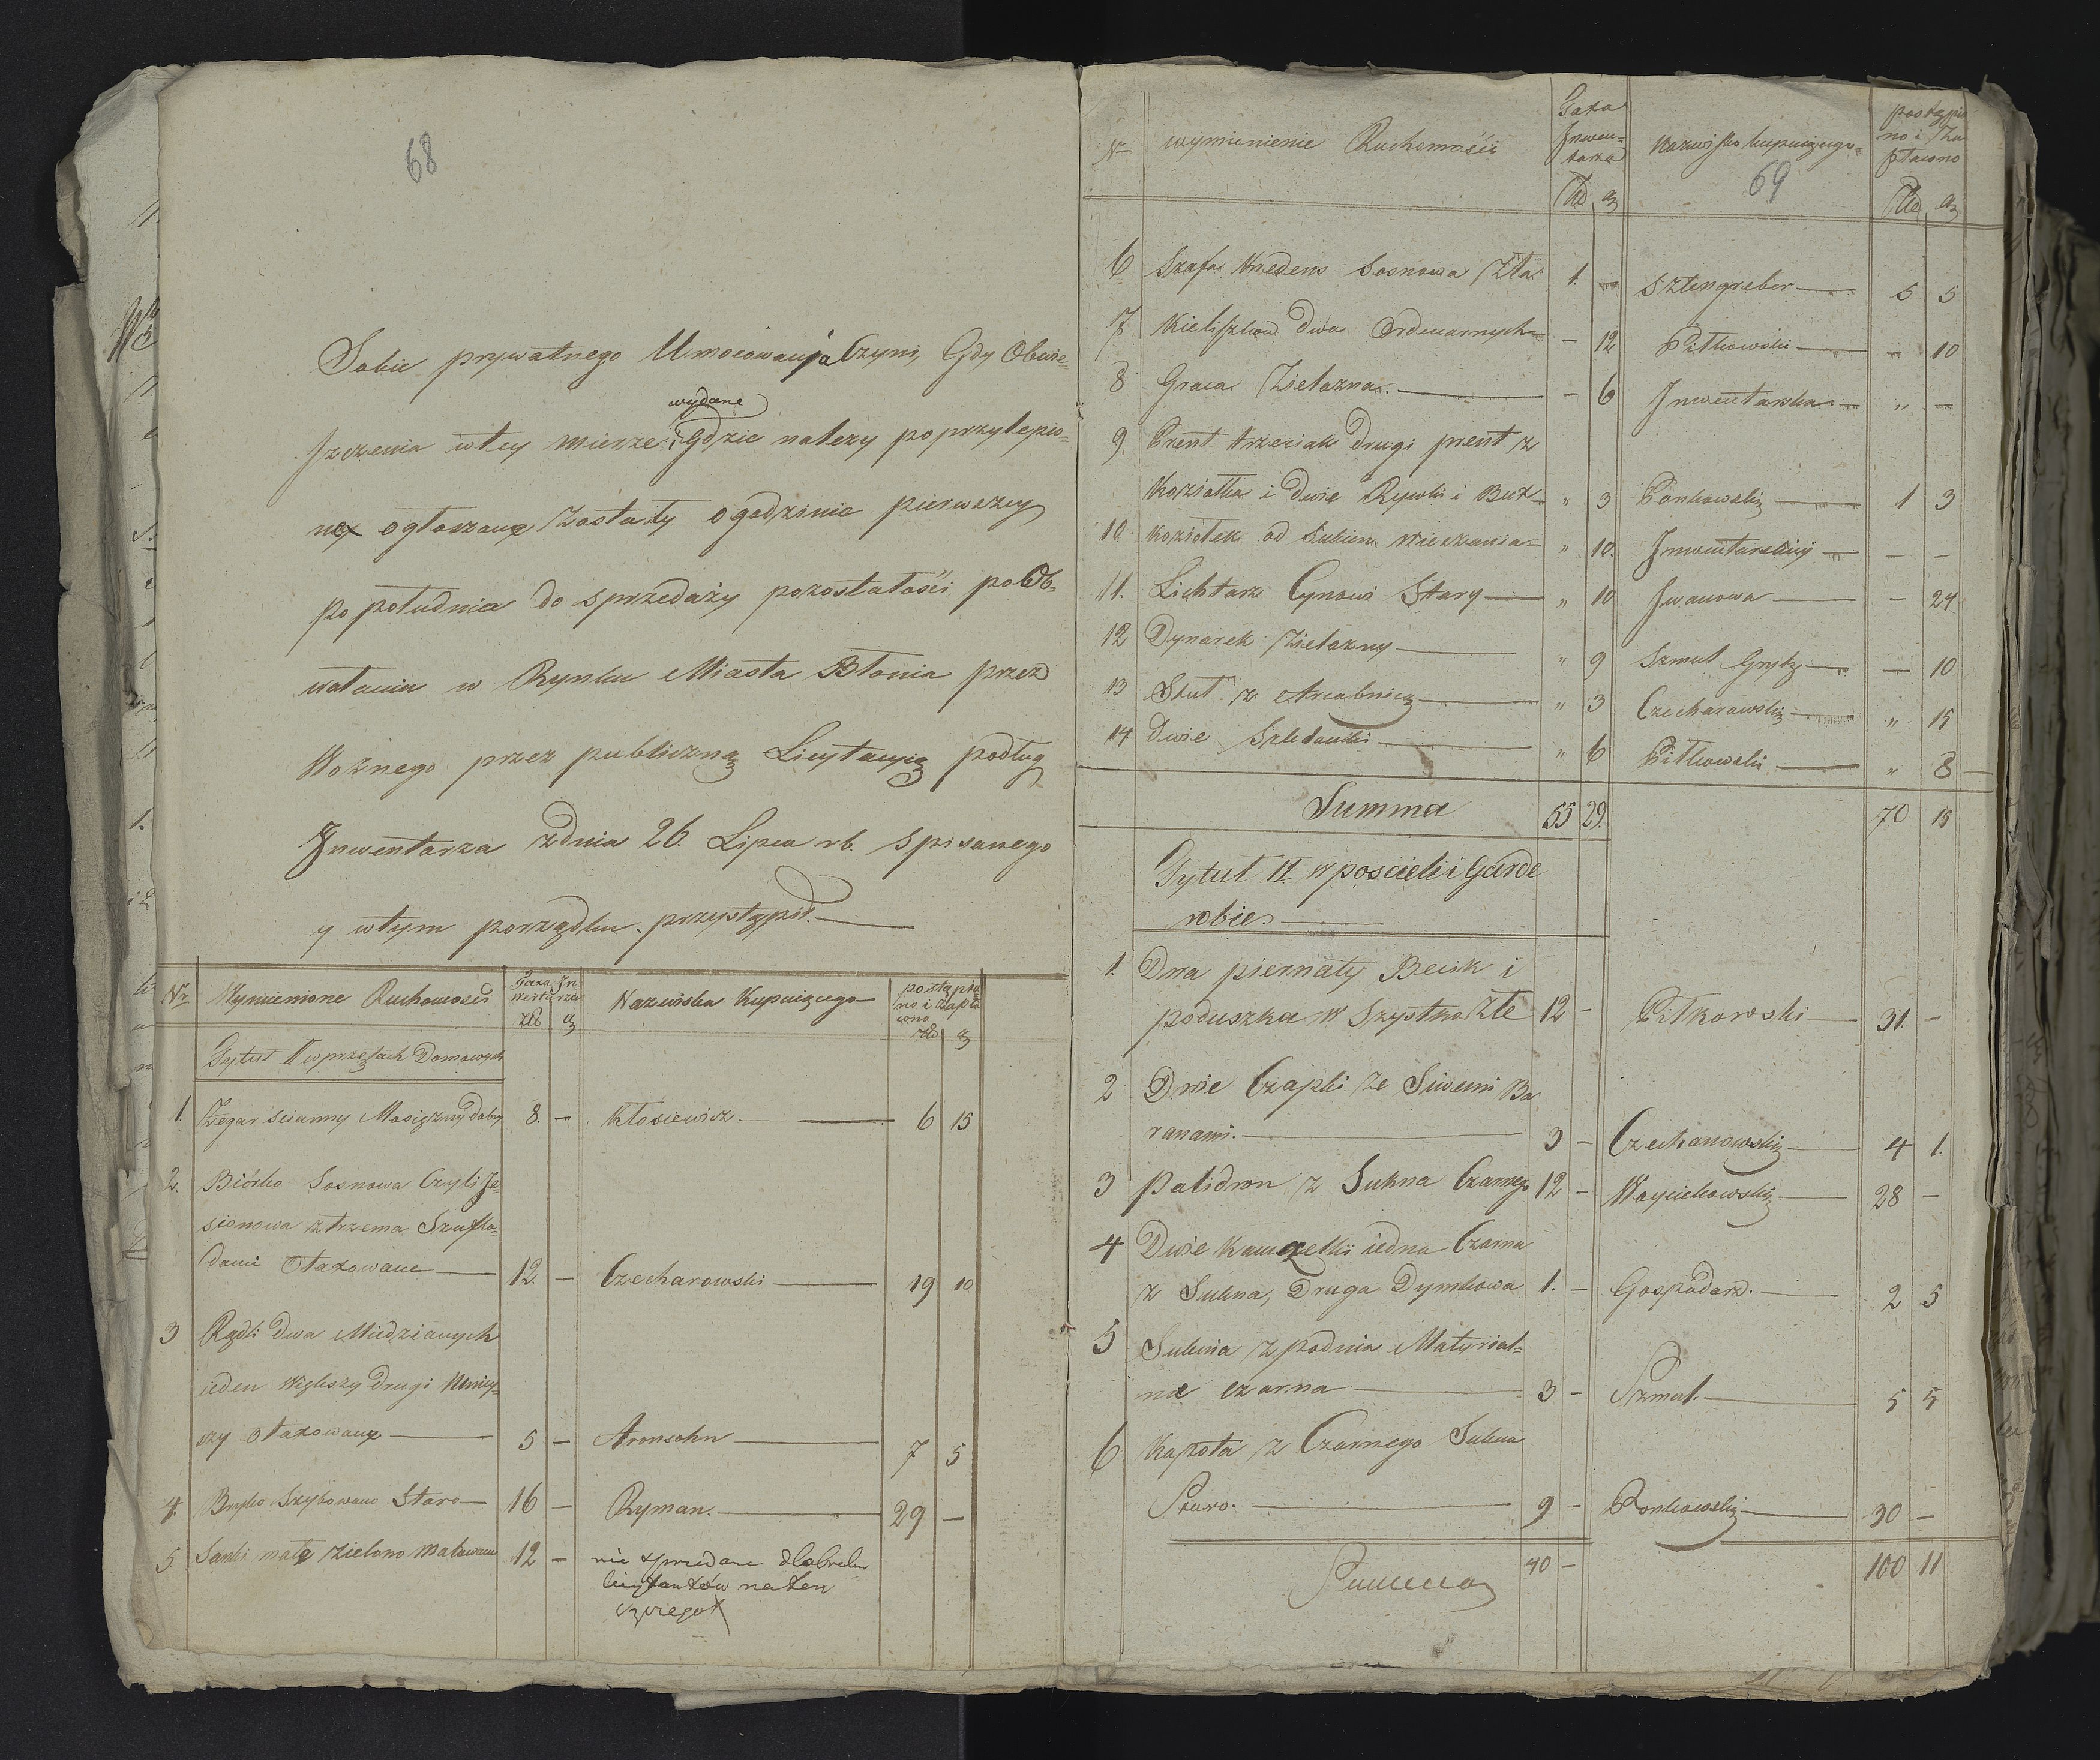 68
Sobie prywatnego Umocowania Czyni, Gdy Obwie-
szczenia wtey mierze wydane i Gdzie nalezy poprzylepio-
ne ogłoszone zostały ogodzinie pierwszey
po południu do sprzedaży pozostałości po Ob-
wołaniu w Rynku Miasta Błonia przez
Woznego przez publiczną Licytacyią podług
Inwentarza zdnia 26. Lipca rb. spisanego
y wtym porządku przystąpił.—
Nr Wymienione Ruchomości Taxa Inwentarza Nazwiska Kupuiącego postąpiono i zapłacono
Zł g Zł g
Tytuł II w przętach Domowych
1. Zegar scianny Mosięzny dobry 8. — Kłosiewicz — 6 15
2. Biórko Sosnowa Czyli Je-
sionowa z trzema Szufla-
dami Otaxowane — 12. — Czecharowski — 19 10
3 Rądli Dwa Miedzianych
ieden Większy drugi Mniey-
szy otaxowane — 5 — Aronsohn — 7 5
4. Bryko Szybowane Stare — 16 — Ryman. — 29 —
5 Sanki małe zielono malowane 12 — nie sprzedane dla braku
licytantów na ten
szczegoł
Nr wymienienie Ruchomości Taxa Inwentarza Nazwisko kupuiącego postąpiono i zapłacono
69
Zł g Zł g
6 Szafa Kredens Sosnowa Zła 1. — Sztengreber — 5 5
7 Kieliszków dwa Ordenarnych — 12 Pitkowski — „ 10
8 Graca Zielazna. — — 6 Inwentarska — „ —
9. Prent trzeciak drugi prent z
Koziołka i dwie Rywki i Bux „ 3 Ponkowski — 1 3
10 Koziołek od Sukien wieszania — „ 10. Inwentarskiey — — —
11. Lichtarz Cynowi Stary — „ 10 Iwanowa — — 24
12 Dynarek Zielazny — „ 9 Szmul Grytz — — 10
13 Stuł z — „ 3 Czecharowski — „ 15
14 Dwie Szklanki — „ 6 Pitkowski — „ 8 —
Summa 55 29. 70 15
Tytuł II w poscieli i Garde
robie. —
1. Dna piernaty Becik i
poduszka w Szystko Złe 12 — Pitkowski — 31. —
2 Dwie Czapki ze Siwemi Ba
ranami. — 3 — Czechanowski — 4 1.
3 Palidron z Sukna Czarnego 12 — Woyciechowski — 28 —
4 Dwie Kamzelki iedna Czarna
z Sukna, Druga Dymkowa 1. — Gospodarz. — 2 5
5 Suknia zpodnia Material-
na czarna — 3 — Szmul. — 5 5
6 Kapota z Czarnego Sukna
Stara. — 9 — Ponkowski — 30 —
Summa 40 — 100 11